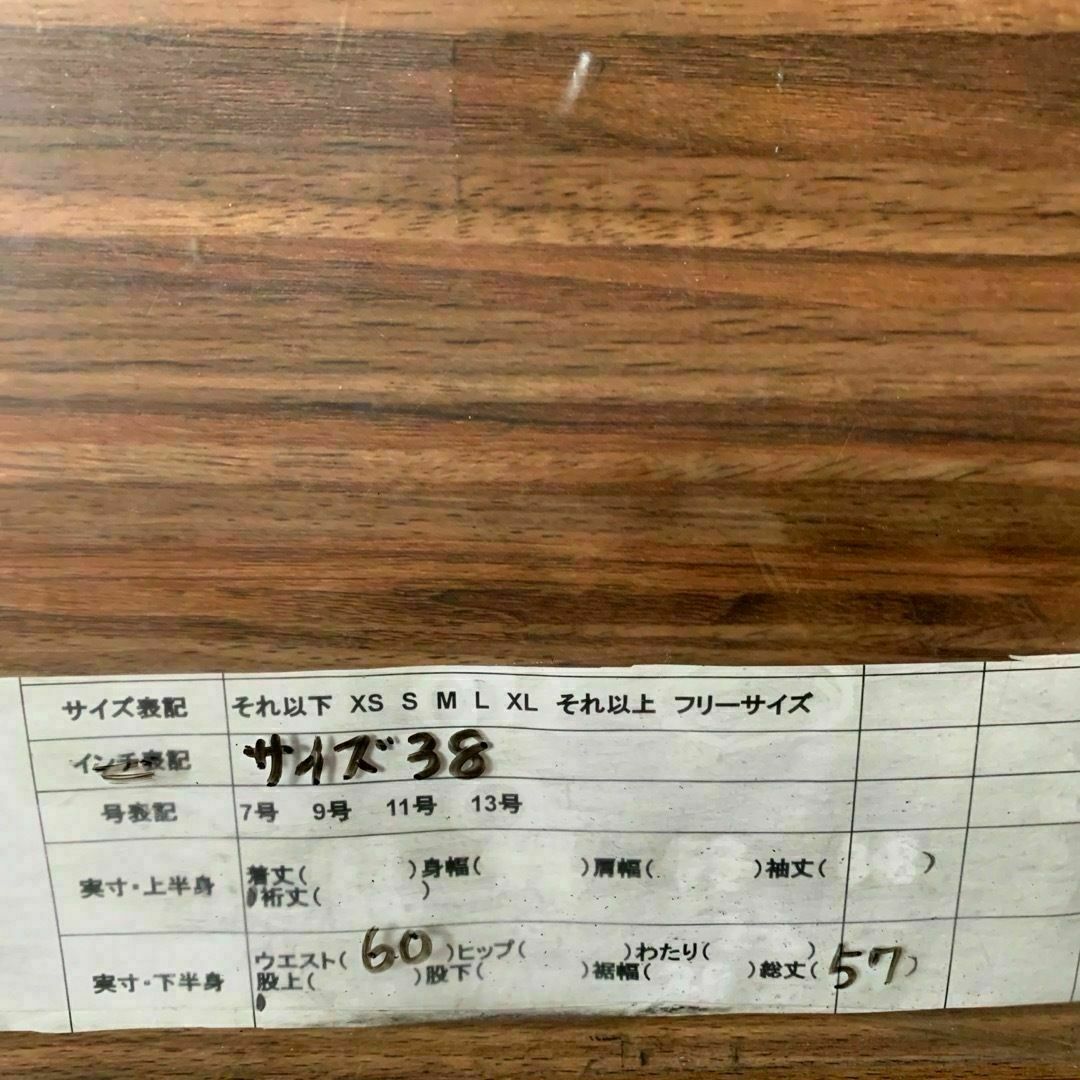 サイズ表記 それ以下 XS S M L XL それ以上 フリーサイズ
インチ表記 サイズ38
号表記 7号 9号 11号 13号
実寸・上半身 着丈( )身幅( )肩幅( )袖丈( )
裄丈( )
実寸・下半身 ウエスト( 60 )ヒップ( )わたり( )
股上( )股下( )裾幅( )総丈( 57 )